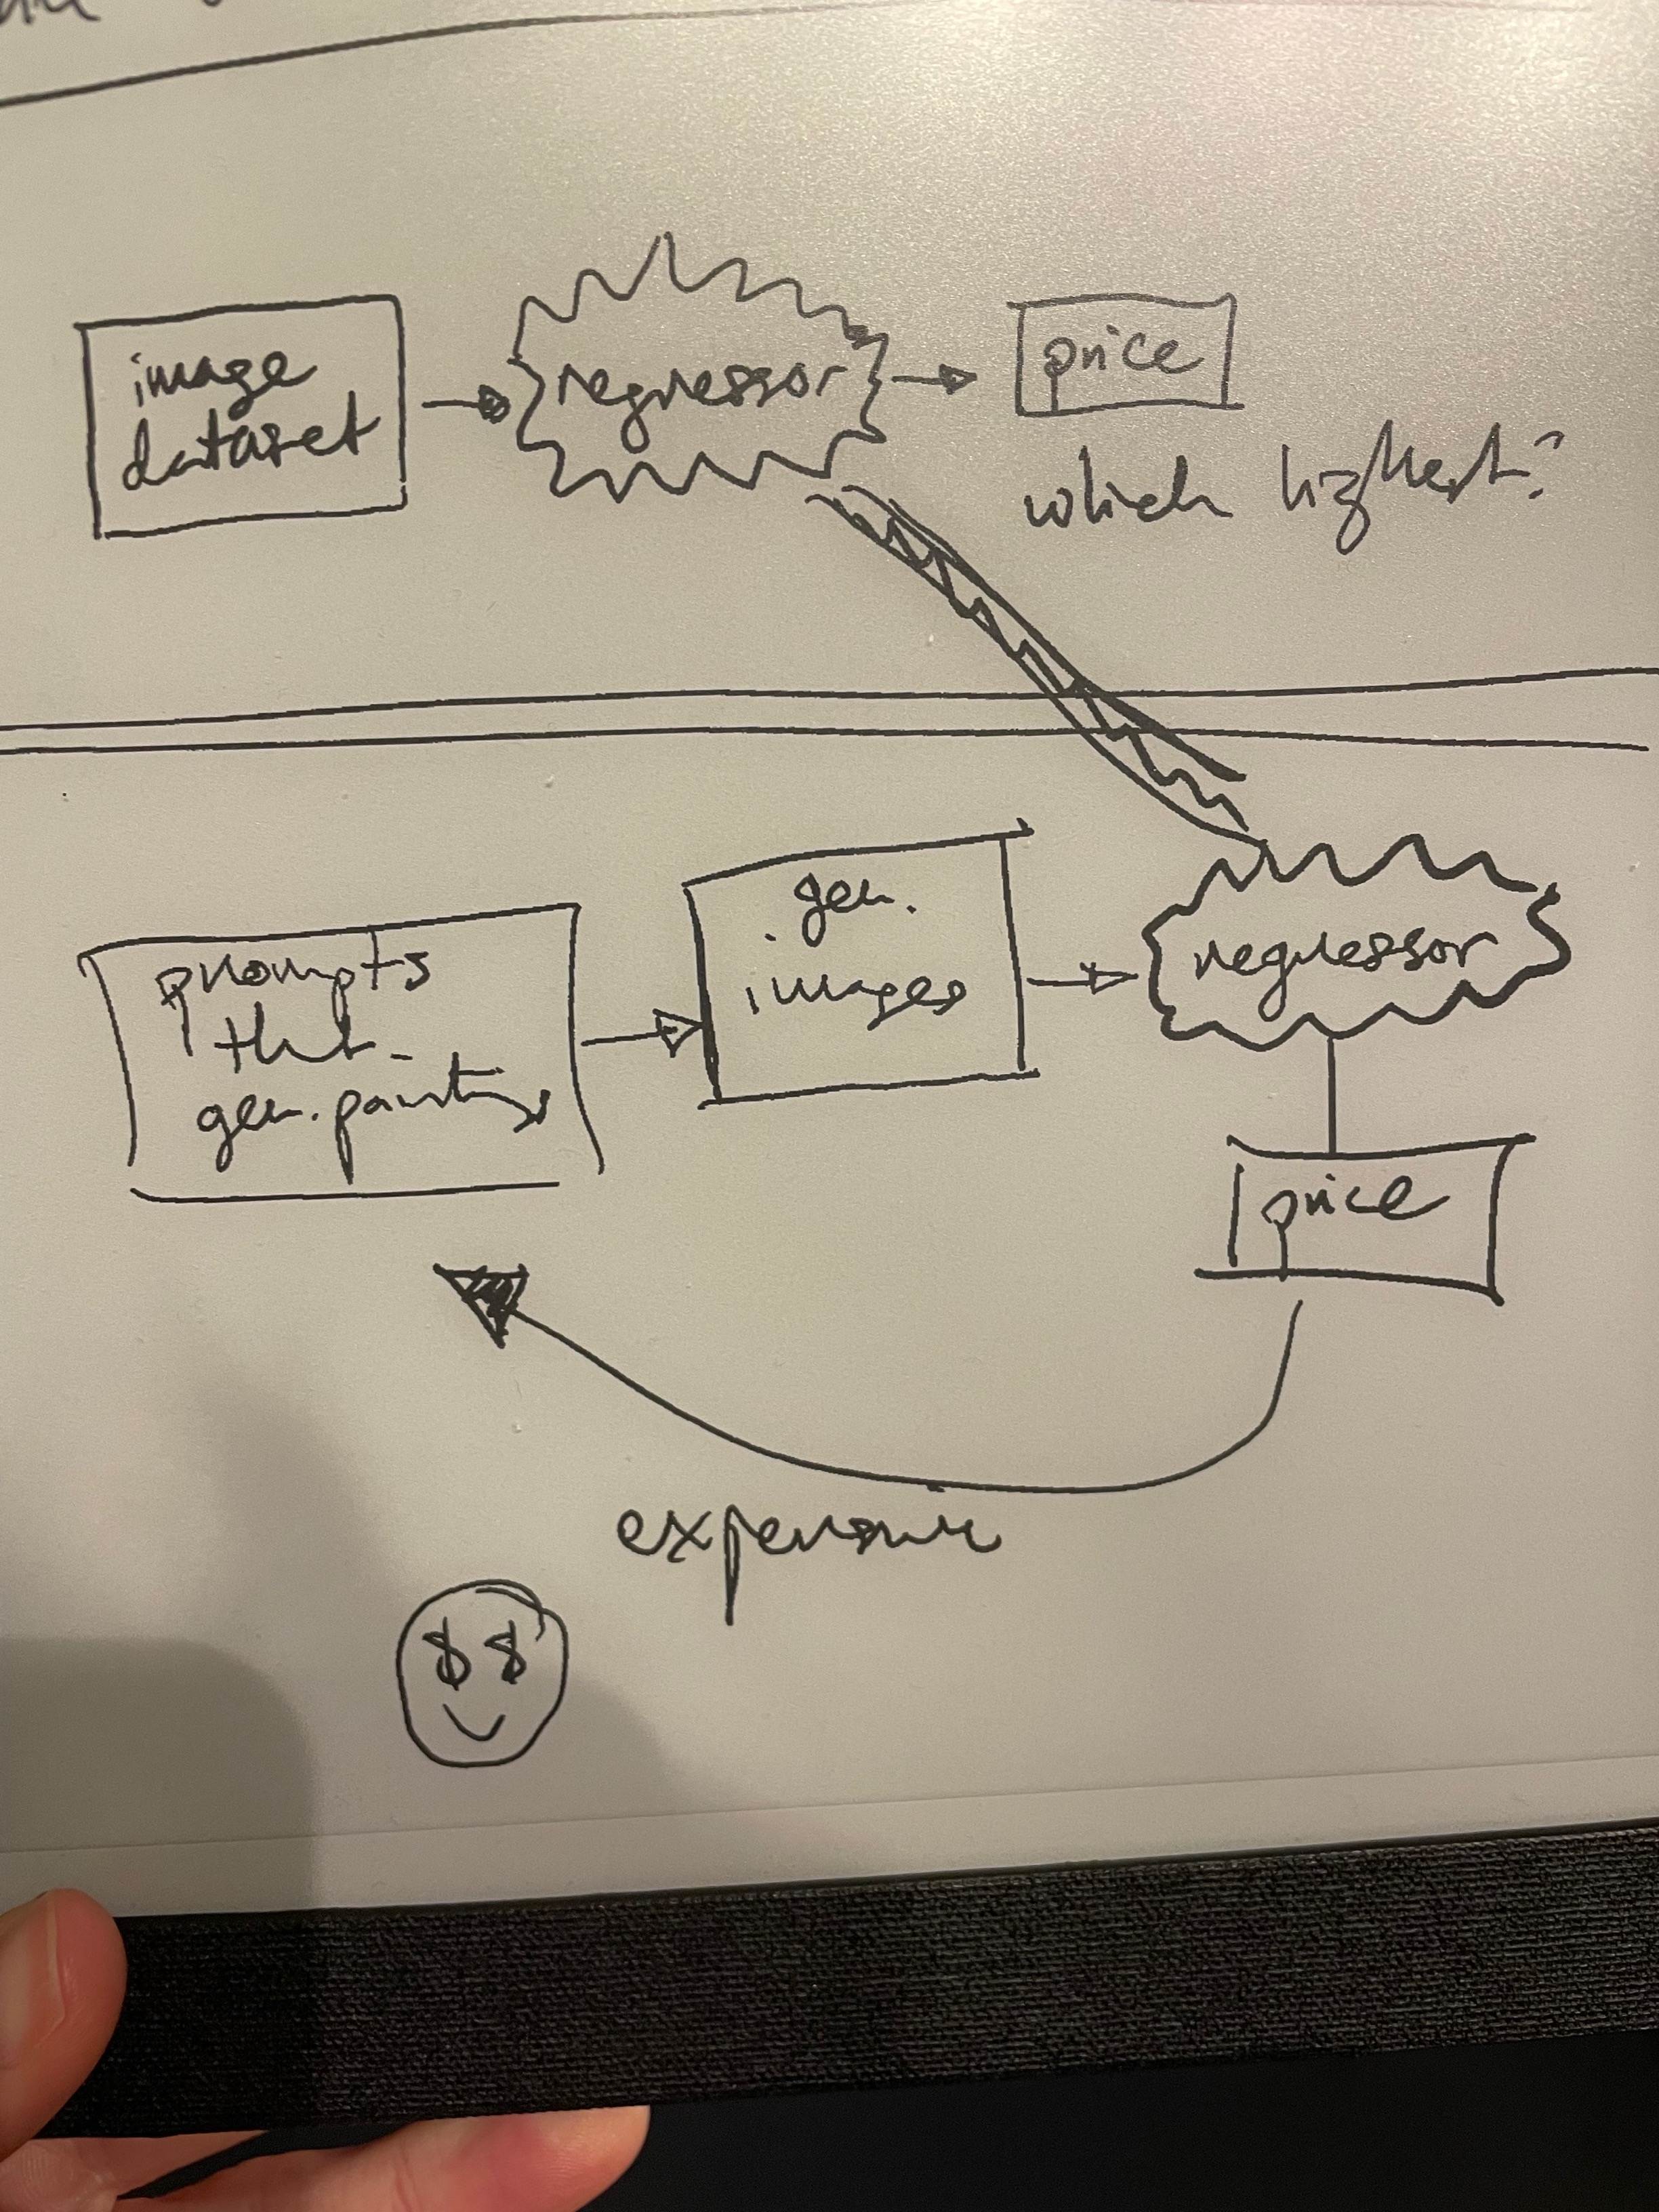 image
dataset
regressor
price
which highest?
prompts
that
gen. paintings
gen.
images
regressor
price
expensive
$ $